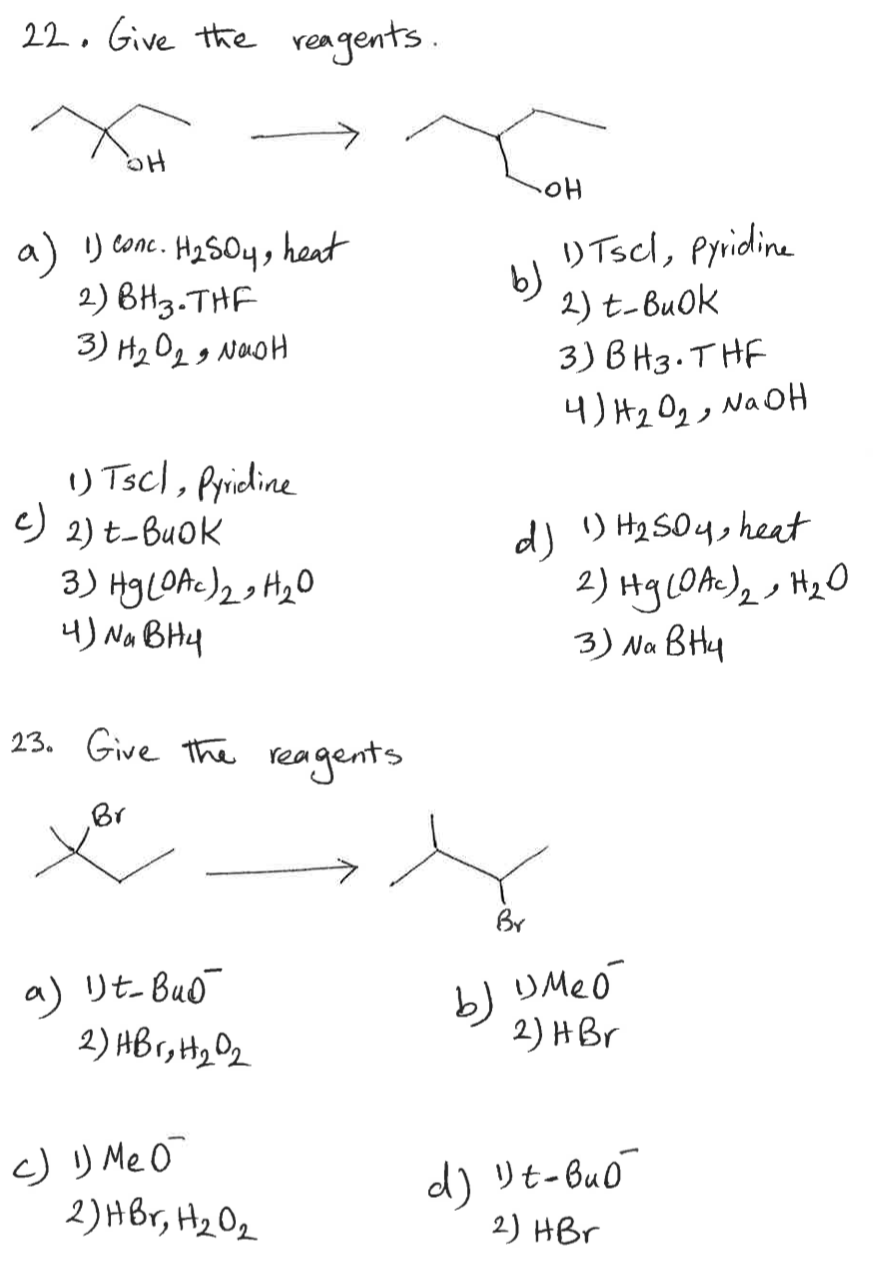 22. Give the reagents.
OH
OH
a) 1) conc. H2SO4, heat
2) BH3·THF
3) H2O2, NaOH
b) 1) Tscl, Pyridine
2) t-BuOK
3) BH3·THF
4) H2O2, NaOH
c) 1) Tscl, Pyridine
2) t-BuOK
3) Hg(OAc)2, H2O
4) NaBH4
d) 1) H2SO4, heat
2) Hg(OAc)2, H2O
3) NaBH4
23. Give the reagents
Br
Br
a) 1) t-BuO⁻
2) HBr, H2O2
b) 1) MeO⁻
2) HBr
c) 1) MeO⁻
2) HBr, H2O2
d) 1) t-BuO⁻
2) HBr